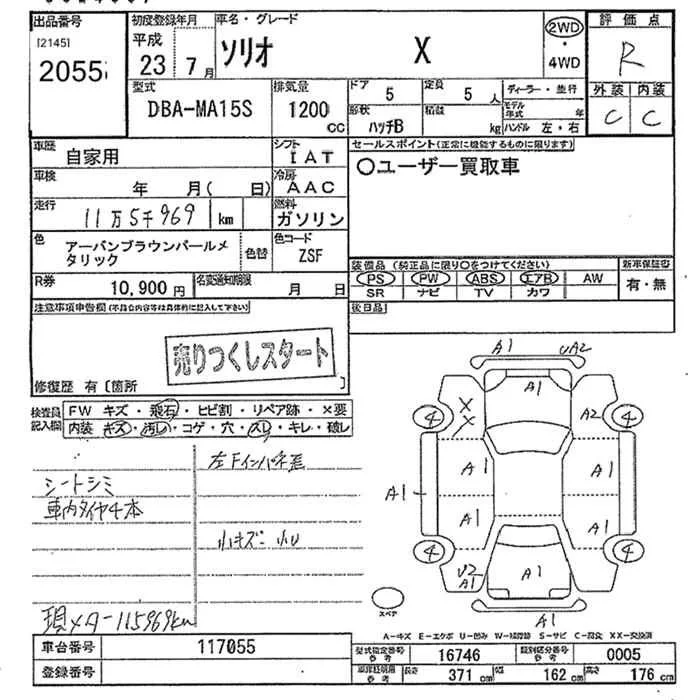 出品番号 初度登録年月 車名・グレード 評価点
[2145]
2055 平成 23 7月 ソリオ X 2WD・4WD R
型式 排気量 ドア 5 定員 5人 ディーラー・並行 外装 内装
DBA-MA15S 1200 cc 形状 ハッチB 積載 kg モデル年式 年 ハンドル 左・右 C C
車歴 自家用 シフト IAT セールスポイント(正常に機能するものに限ります)
車検 年 月( 日) 冷房 AAC ○ユーザー買取車
走行 11万5千969 km 燃料 ガソリン
色 アーバンブラウンパールメタリック 色替 色コード ZSF
R券 10,900円 名変通知期限 月 日
装備品(純正品に限り○をつけてください) 新車保証書
PS PW ABS エアB AW 有・無
SR ナビ TV カワ
注意事項申告欄(不具合内容等は具体的に記入して下さい) 後日品
売りつくしスタート
修復歴 有〔箇所 〕
検査員記入欄 FW キズ・飛石・ヒビ割・リペア跡・×要
内装 キズ・汚レ・コゲ・穴・スレ・キレ・破レ
左Fインパネ差
シートシミ
車内タイヤ4本
小キズ・凹
現メーター115969km
A1 UA2
A1
4 X X A2 4
A1 A1
A1
A1 A1
4 4
U2 A1 A1
A1
スペア
A-キズ E-エクボ U-凹み W-補修跡 S-サビ C-腐食 XX-交換済
車台番号 117055 型式指定番号 参考 16746 類別区分番号 参考 0005
登録番号 車庫証明用 参考 長さ 371cm 幅 162cm 高さ 176cm